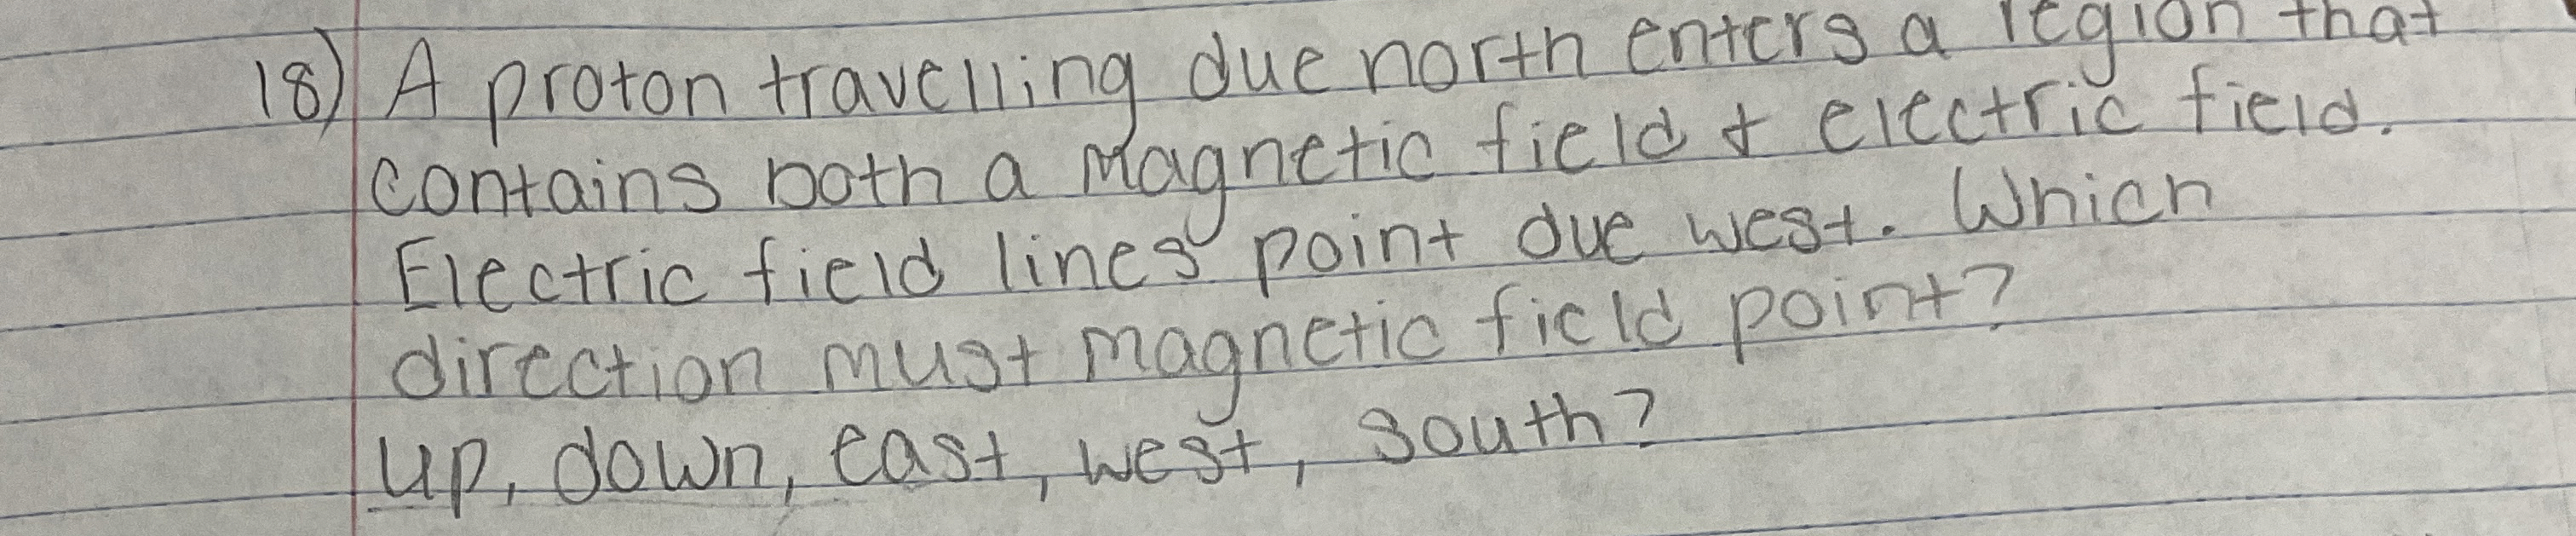 18) A proton travelling due north enters a region that
contains both a magnetic field & electric field.
Electric field lines point due west. Which
direction must magnetic field point?
up, down, east, west, south?